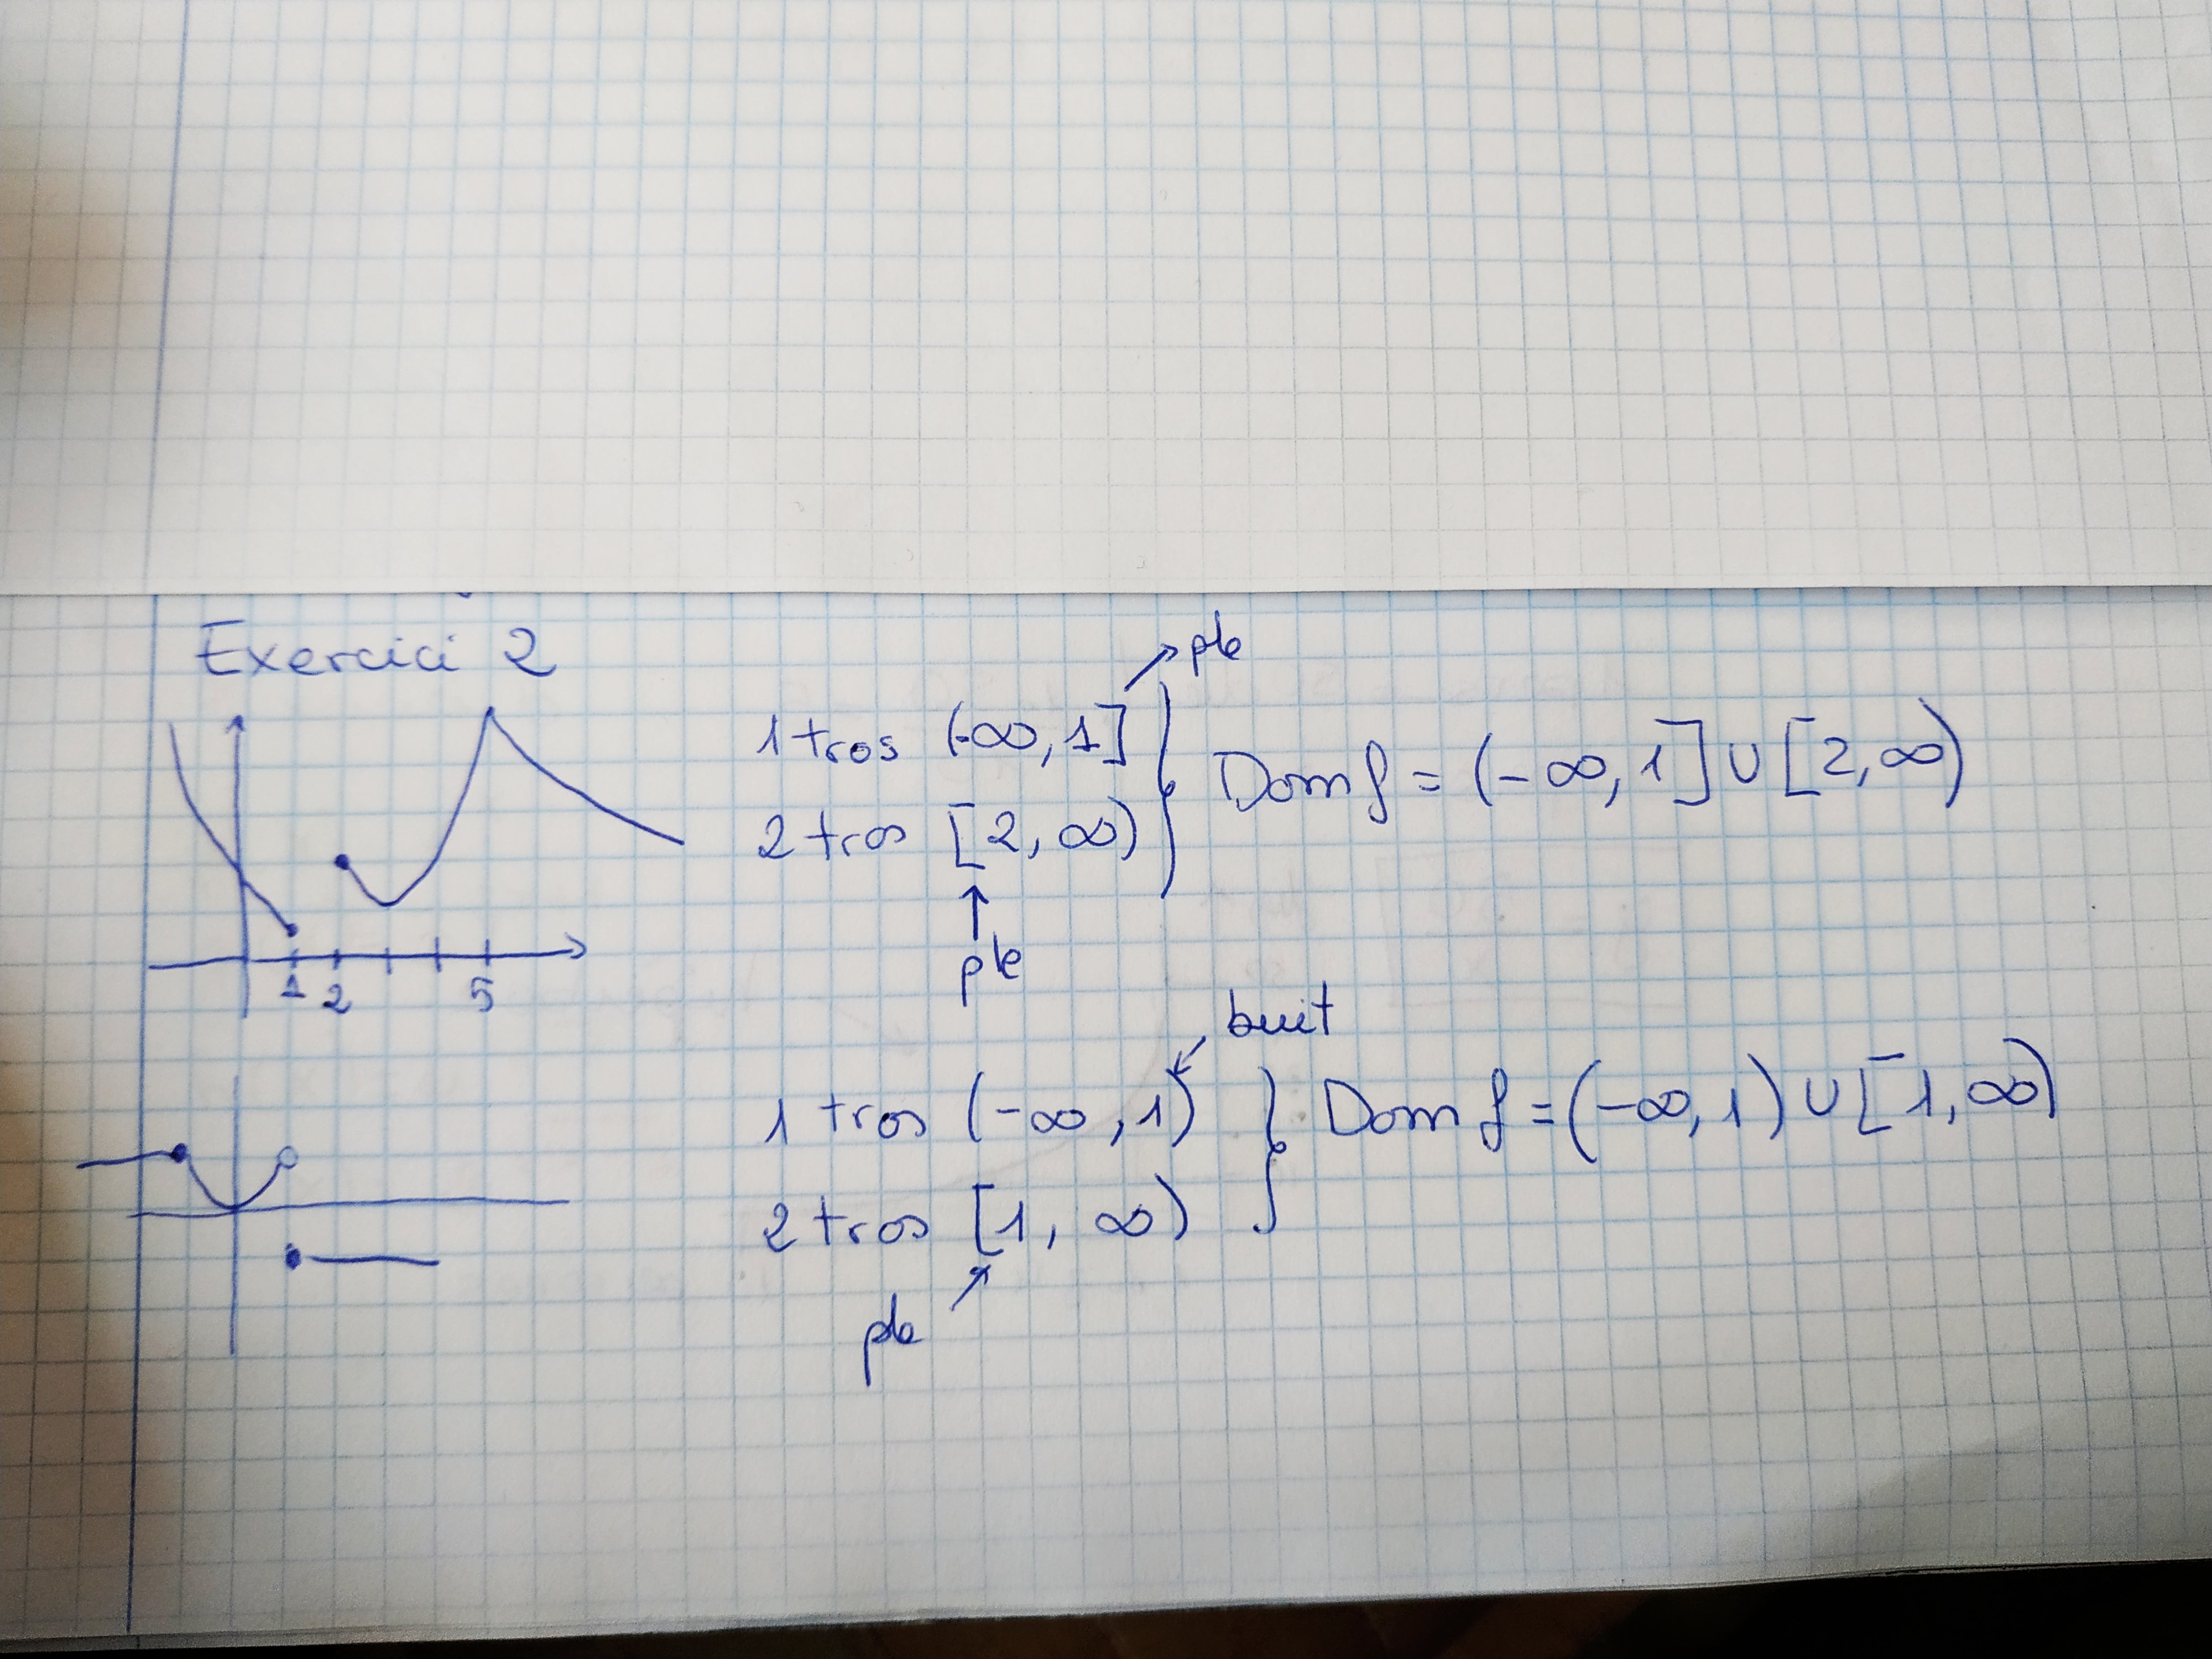 Exercici 2
ple
1 tros (-∞, 1]
2 tros [2, ∞)
Dom f = (-∞, 1] ∪ [2, ∞)
ple
1 2 5
buit
1 tros (-∞, 1)
2 tros [1, ∞)
Dom f = (-∞, 1) ∪ [1, ∞)
ple